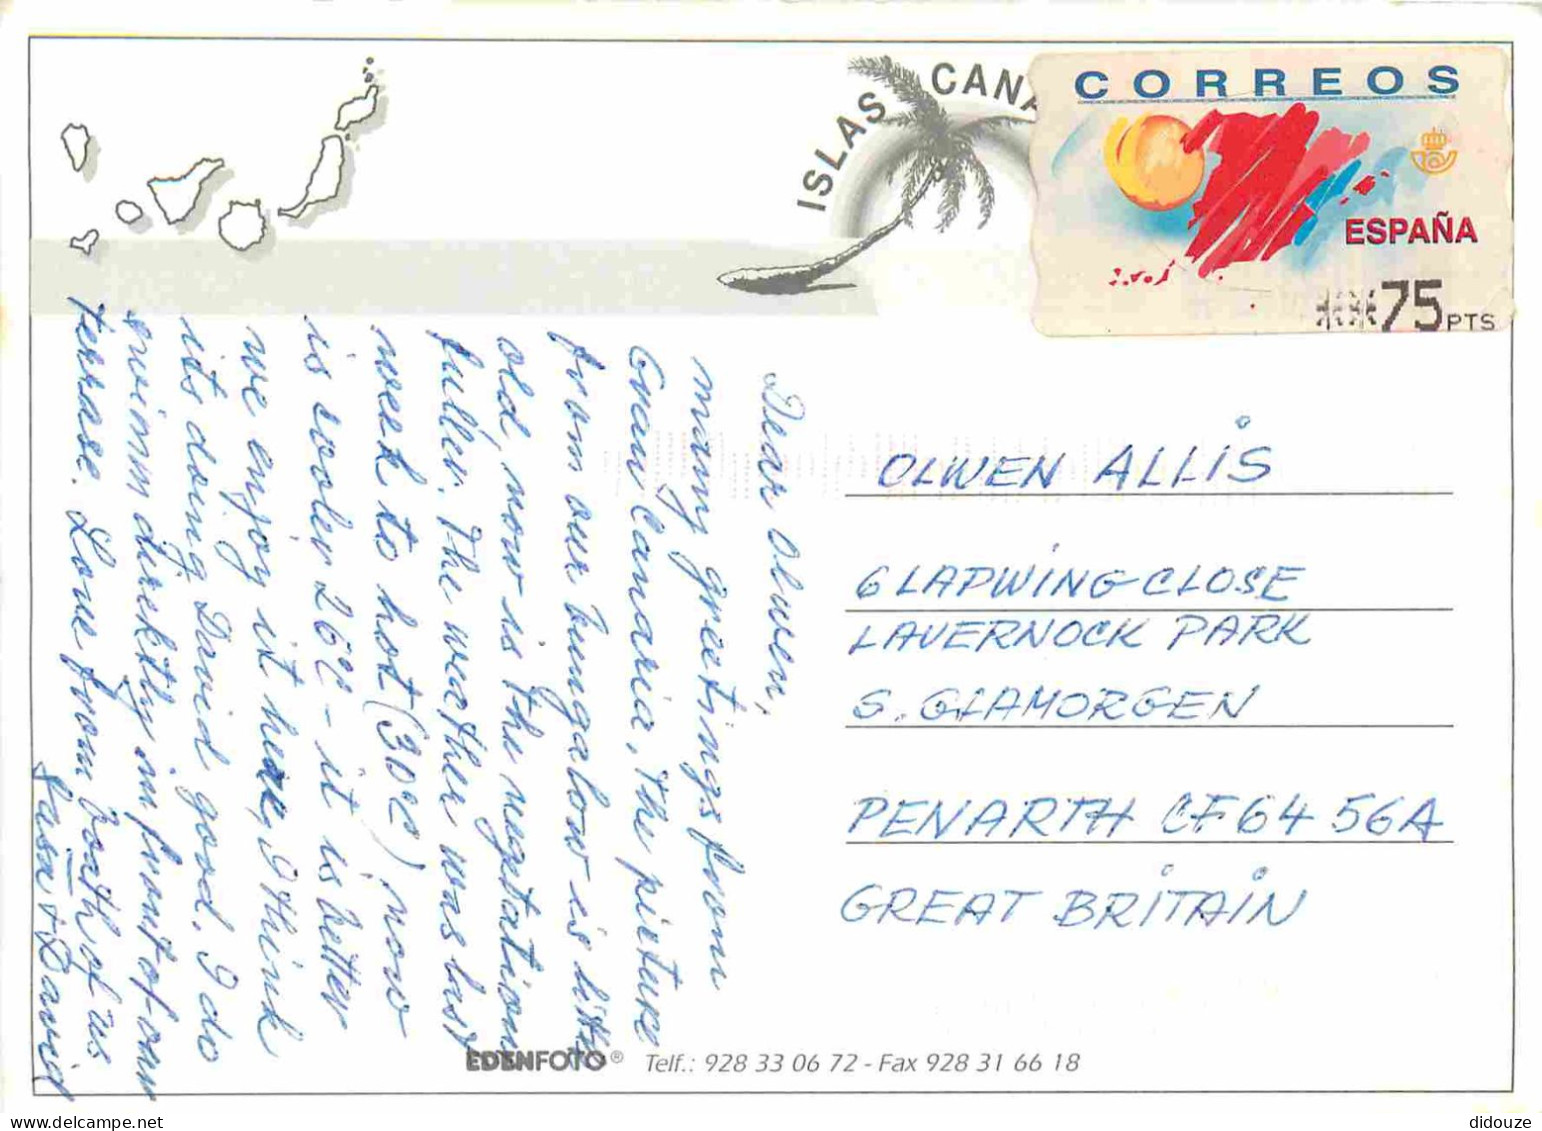 ISLAS CANA
CORREOS
ESPAÑA
**75 PTS
Dear Olwen,
many greetings from
Gran Canaria, the picture
from our bungalow is little
old, now is the vegetation
fuller. The weather was last
week to hot (30°C) now
is cooler 26°C - it is better
we enjoy it here, I think
its doing David good. I do
swimm direktly in front of our
terrase. Love from boath of us
+ David
OLWEN ALLIS
6 LAPWING CLOSE
LAVERNOCK PARK
S. GLAMORGEN
PENARTH CF64 5GA
GREAT BRITAIN
EDENFOTO® Telf.: 928 33 06 72 - Fax 928 31 66 18
delcampe.net
didouze